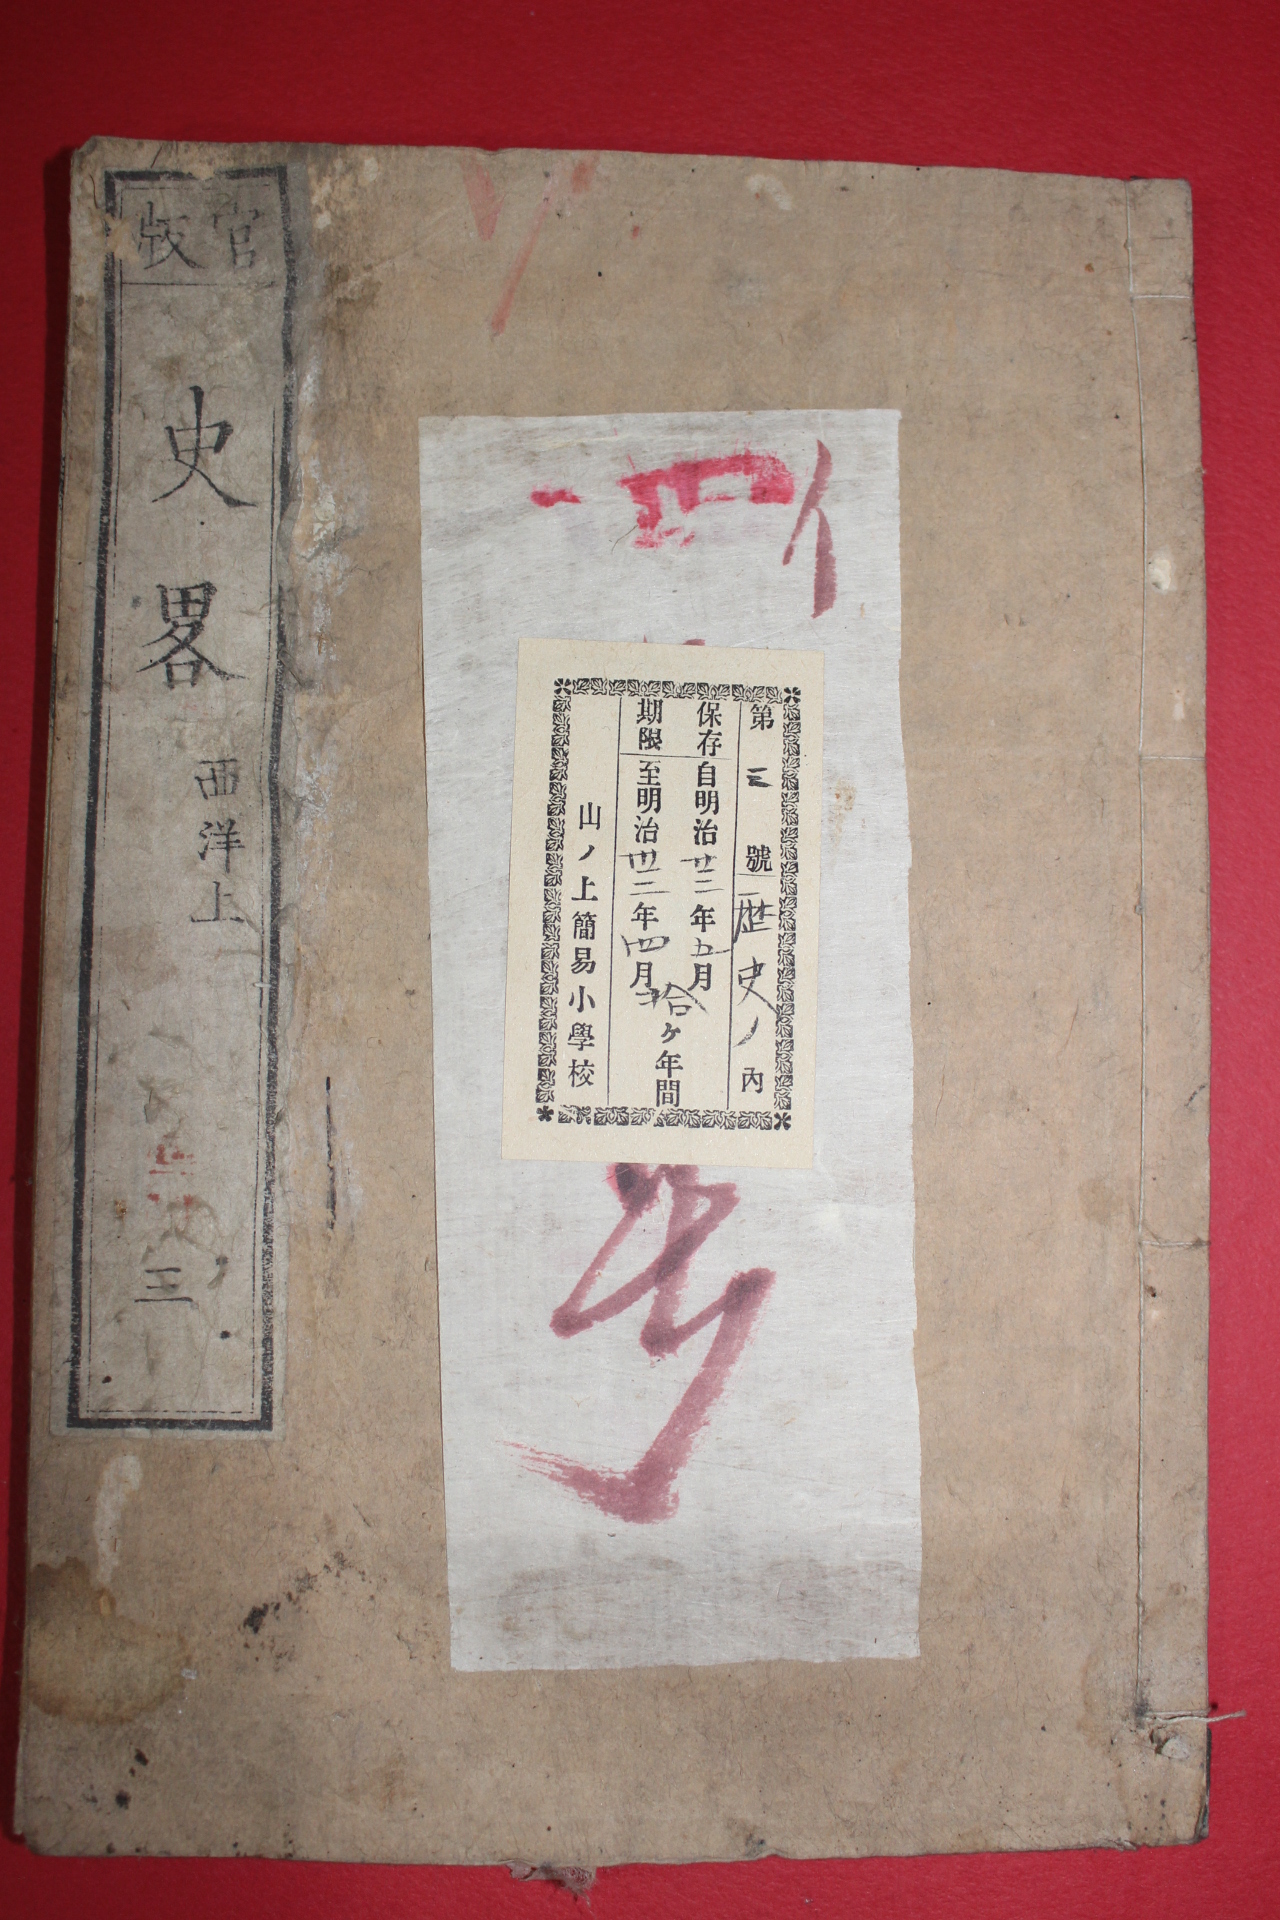 官版
史畧
西洋上
三
第三號 歴史ノ內
保存期限
自明治廿二年五月
至明治卅二年四月
拾ケ年間
山ノ上簡易小學校